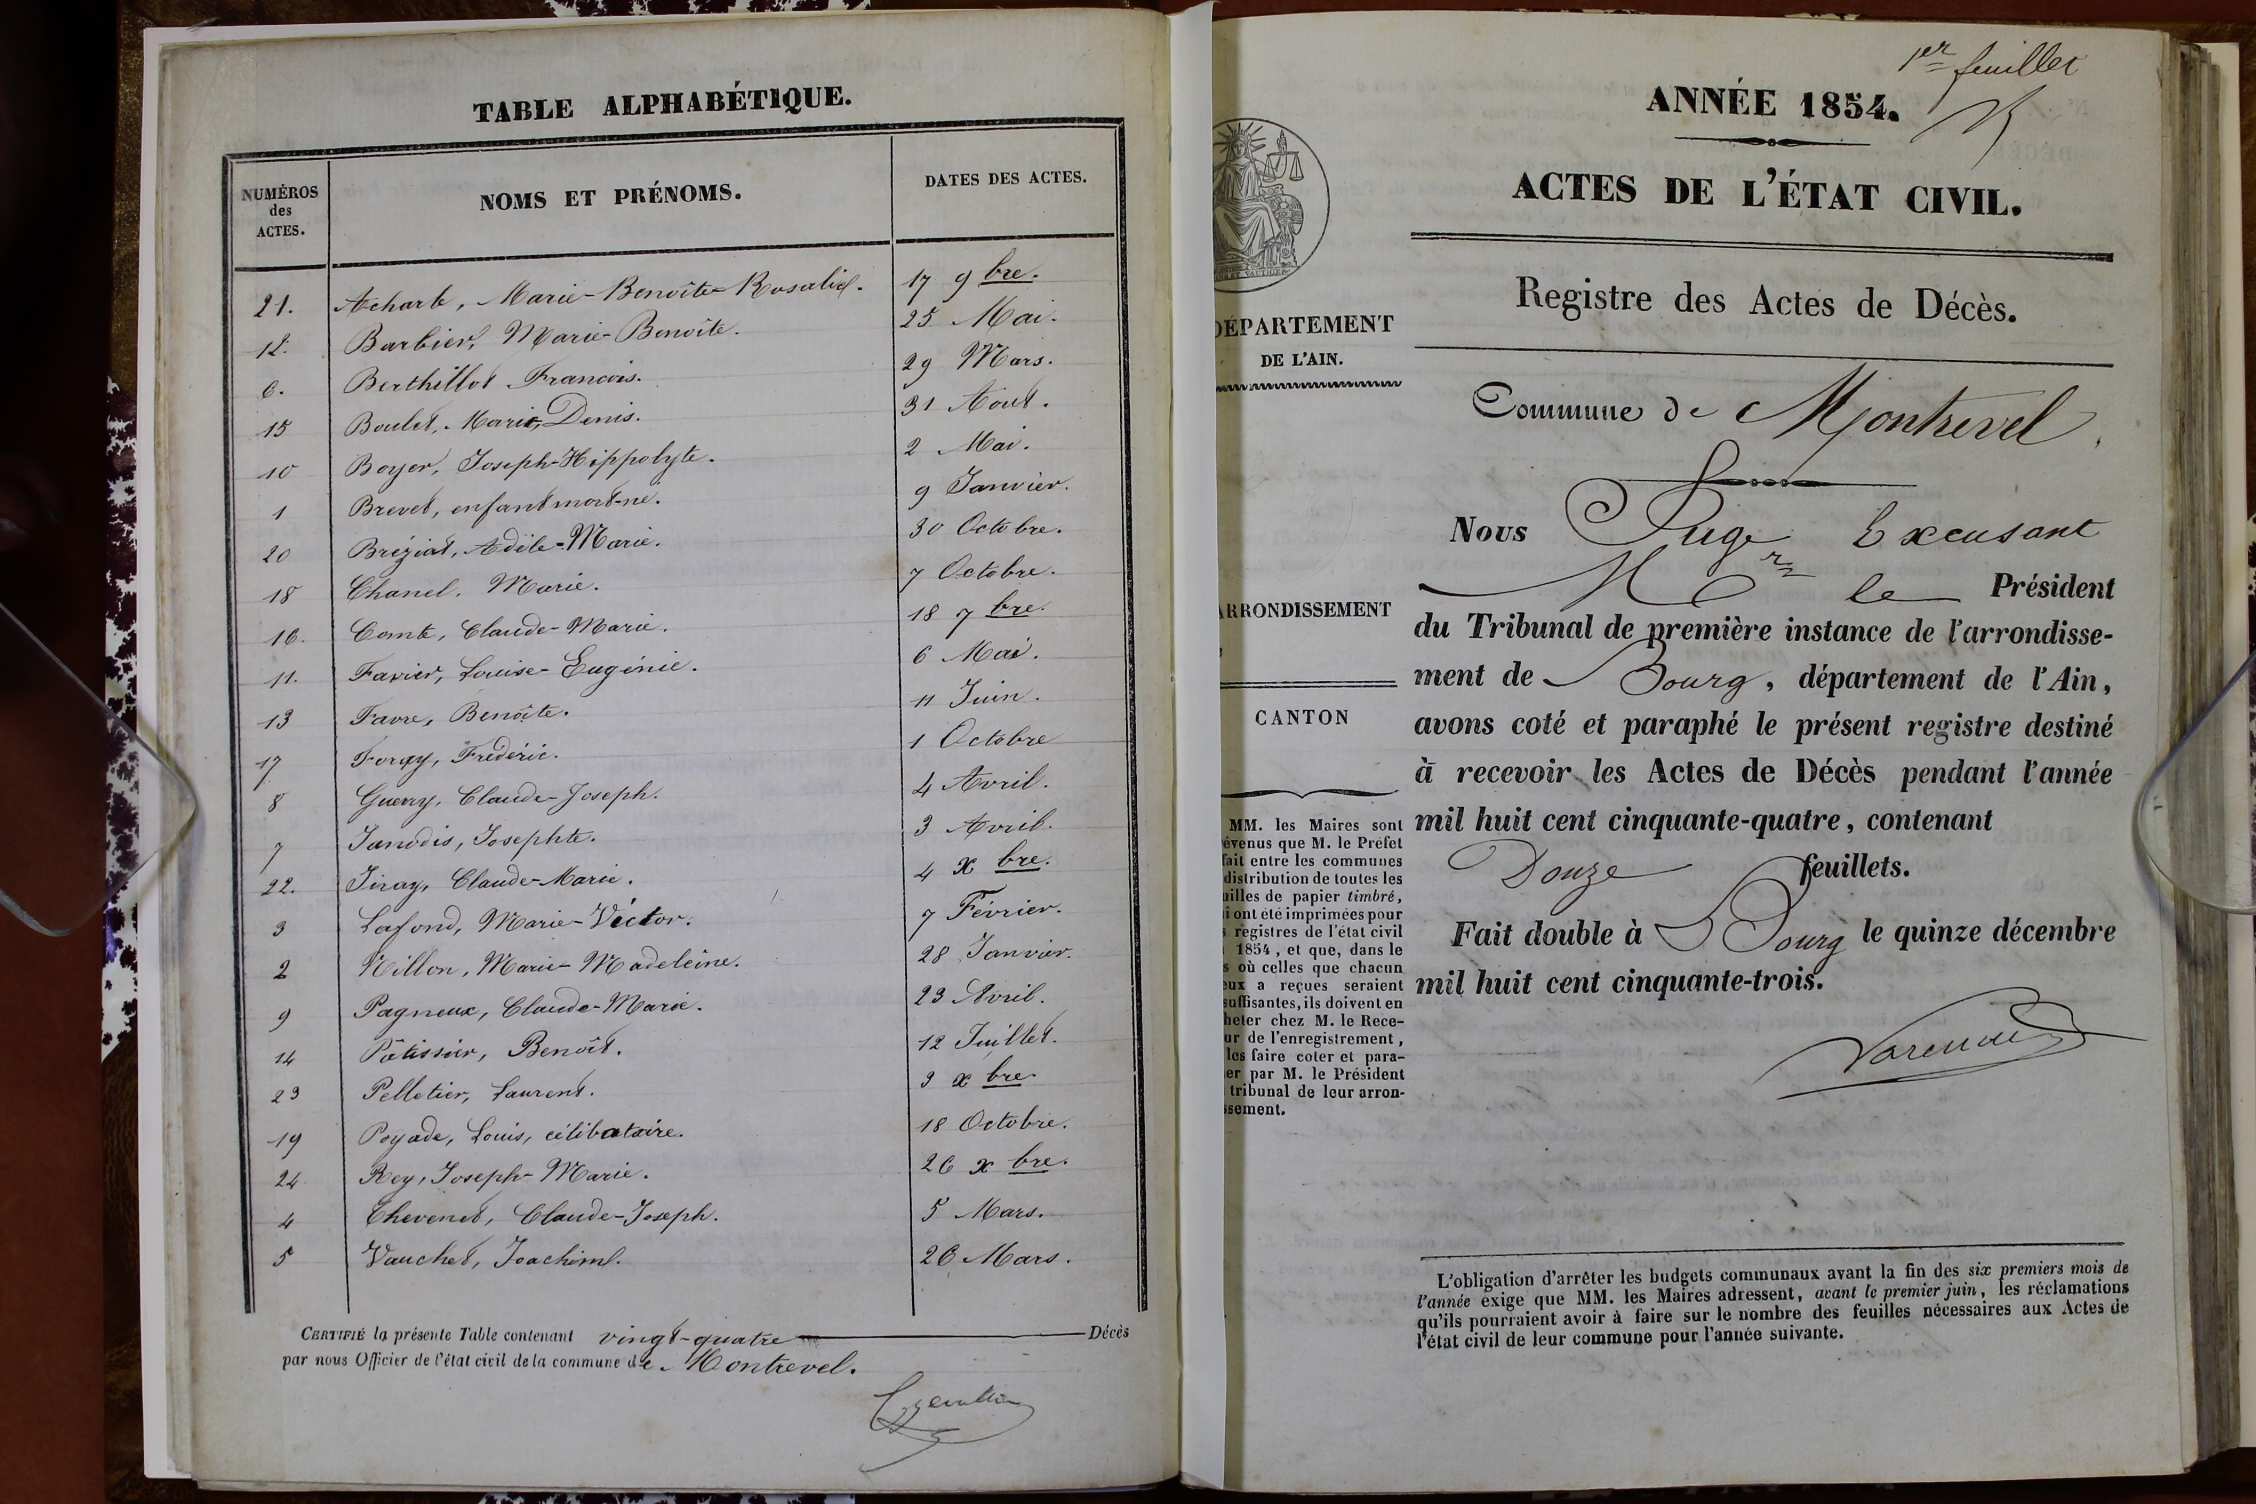 TABLE ALPHABÉTIQUE.
NUMÉROS des ACTES. NOMS ET PRÉNOMS. DATES DES ACTES.
21. Acharb, Marie-Benoîte-Rosalie. 17 9bre.
12. Barbier, Marie-Benoîte. 25 Mai.
6. Berthillot François. 29 Mars.
15 Boulet, Marie, Denis. 31 Août.
10 Boyer, Joseph-Hippolyte. 2 Mai.
1 Brevet, enfant mort-né. 9 Janvier.
20 Bréziat, Adèle-Marie. 30 Octobre.
18 Chanel, Marie. 7 Octobre.
16. Comte, Claude-Marie. 18 7bre.
11. Favier, Louise-Eugénie. 6 Mai.
13 Favre, Benoîte. 11 Juin.
17 Frédéric. 1 Octobre
8 Guerry, Claude-Joseph. 4 Avril.
7 Janodis, Josephte. 3 Avril.
22. Claude-Marie. 4 xbre.
3 Lafond, Marie-Victor. 7 Février.
2 Nillon, Marie-Madeleine. 28 Janvier.
9 Pagneux, Claude-Marie. 23 Avril.
14 Pâtissier, Benoît. 12 Juillet.
23 Pelletier, Laurent. 9 xbre.
19 Poyade, Louis, célibataire. 18 Octobre.
24 Rey, Joseph-Marie. 26 xbre.
4 Thevenet, Claude-Joseph. 5 Mars.
5 Vauchet, Joachim. 26 Mars.
CERTIFIÉ la présente Table contenant vingt-quatre Décès
par nous Officier de l'état civil de la commune de Montrevel.
1er feuillet
ANNÉE 1854.
ACTES DE L'ÉTAT CIVIL.
Registre des Actes de Décès.
DÉPARTEMENT
DE L'AIN.
ARRONDISSEMENT
CANTON
MM. les Maires sont
évenus que M. le Préfet
fait entre les communes
distribution de toutes les
uilles de papier timbré,
i ont été imprimées pour
s registres de l'état civil
1854, et que, dans le
s où celles que chacun
eux a reçues seraient
suffisantes, ils doivent en
heter chez M. le Rece-
ur de l'enregistrement,
les faire coter et para-
er par M. le Président
tribunal de leur arron-
ssement.
Commune de Montrevel
Nous Juge Excusant
Mr le Président
du Tribunal de première instance de l'arrondisse-
ment de Bourg, département de l'Ain,
avons coté et paraphé le présent registre destiné
à recevoir les Actes de Décès pendant l'année
mil huit cent cinquante-quatre, contenant
Douze feuillets.
Fait double à Bourg le quinze décembre
mil huit cent cinquante-trois.
L'obligation d'arrêter les budgets communaux avant la fin des six premiers mois de
l'année exige que MM. les Maires adressent, avant le premier juin, les réclamations
qu'ils pourraient avoir à faire sur le nombre des feuilles nécessaires aux Actes de
l'état civil de leur commune pour l'année suivante.